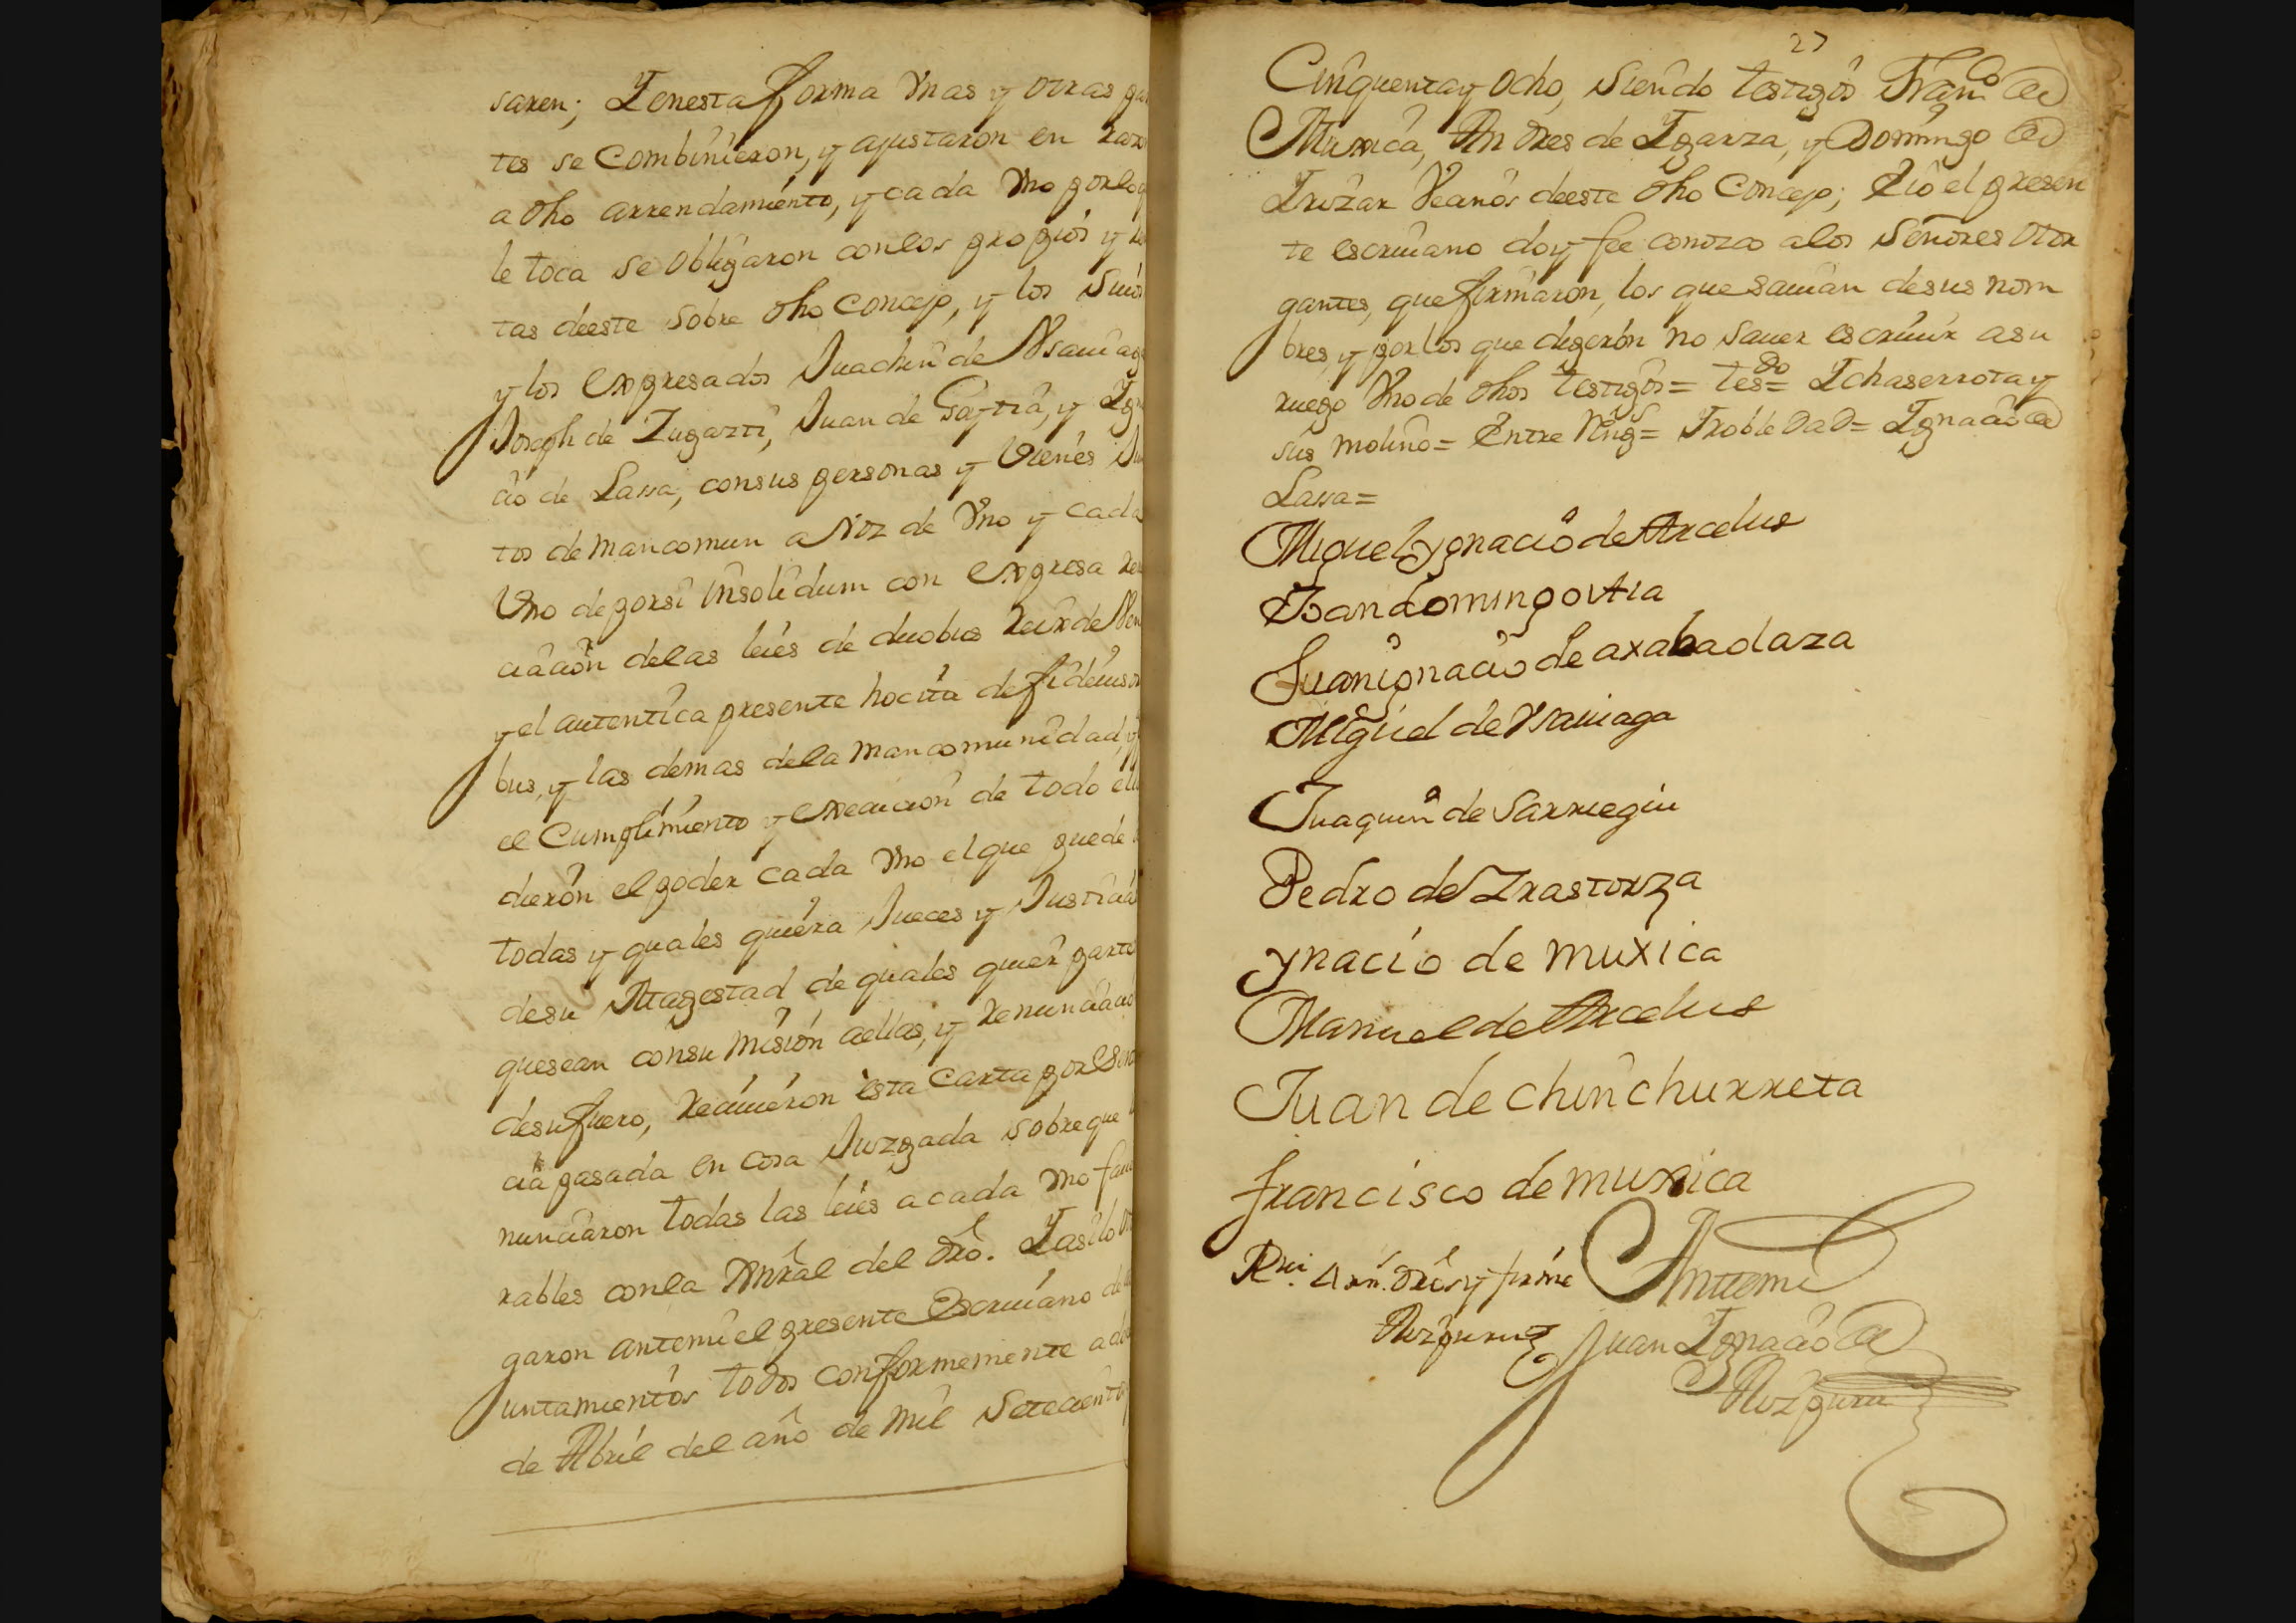 saren; Y enesta forma Vnas y otras par
tes se Combinieron, y ajustaron en raxo
a dho arrendamiento, y cada Vno por lo q
le toca se obligaron con los propios y
tas deeste sobre dho Concejo, y los
y los Expresados Juachin de Vsauiaga
Joseph de Zugazti, Juan de Gaztia, y Ign
cio de Lassa, consus personas y Vienes Ju
tos de mancomun a Voz de Vno y cada
Vno de porsi insolidum con Expresa ren
ciación delas leies de duobus reix de Ven
y el autentica presente hocita de fideius o
bus, y las demas dela mancomunidad, y
el Cumplimiento y execucion de todo ell
dierón el poder cada Vno el que puede
todas y quales quiera Jueces y Justicia
desu Magestad de quales quier parte
quesean consu misión aellas, y renunciacio
desu fuero, reciuierón esta Carta por Sen
cia pasada en cosa Juzgada sobreque
nunciaron todas las leies acada Vno fau
rables conla Genral del dro. Y asilo o
garon antemi el presente Escriuano de
Juntamientos todos conformemente a
de Abril del año de mil Setecientos
27
Cinquenta y Ocho, Siendo testigos Franco de
Muxica, Andres de Ygarza, y Domingo de
Iruzar Veanos deeste dho Concejo; E io el presen
te escriuano doy fee conozco alos Señores Otor
gantes, que firmaron, los que sauian desus nom
bres, y por los que digeron no sauer escriuir asu
ruego Vno de dhos testigos= tesdo= Ichaserrota y
sus molino= Entre Rengs= Troble Dad= Ygnacio de
Lassa=
Miguel Ygnacio de Arcelus
Joan domingo Vria
Juan ignacio de axabaolaza
Miguel de Vsauiaga
Juaquin de Sarriegui
Pedro de Irastorza
ynacio de muxica
Manuel de Arcelus
Juan de Chinchurreta
francisco de muxica
Rui 4 rrs. dros y firme
Antemi
Aozpuru
Juan Ygnacio de
Aozpuru